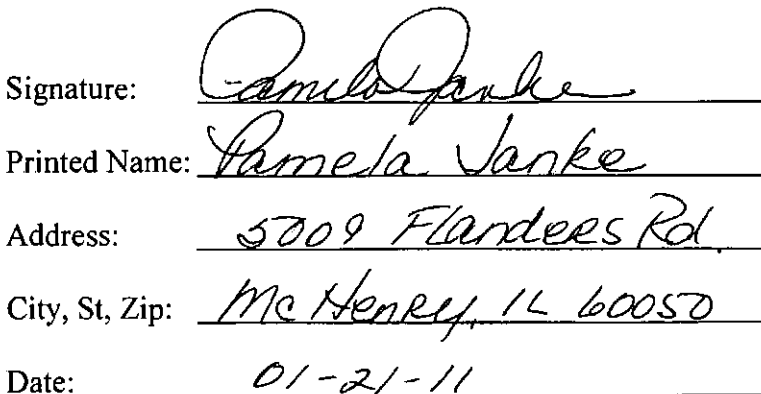 Signature: Pamela Janke
Printed Name: Pamela Janke
Address: 5009 Flanders Rd.
City, St, Zip: McHenry, IL 60050
Date: 01-21-11